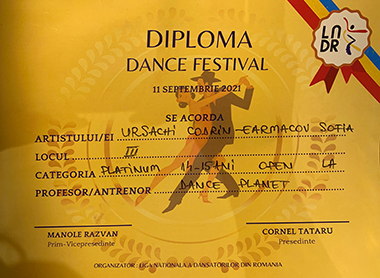 LNDR
DIPLOMA
DANCE FESTIVAL
11 SEPTEMBRIE 2021
SE ACORDA
ARTISTULUI/EI URSACHI CODRIN - EARMACOV SOFIA
LOCUL III
CATEGORIA PLATINUM 14-15 ANI OPEN LA
PROFESOR/ANTRENOR DANCE PLANET
MANOLE RAZVAN
Prim-Vicepresedinte
CORNEL TATARU
Presedinte
ORGANIZATOR : LIGA NATIONALA A DANSATORILOR DIN ROMANIA